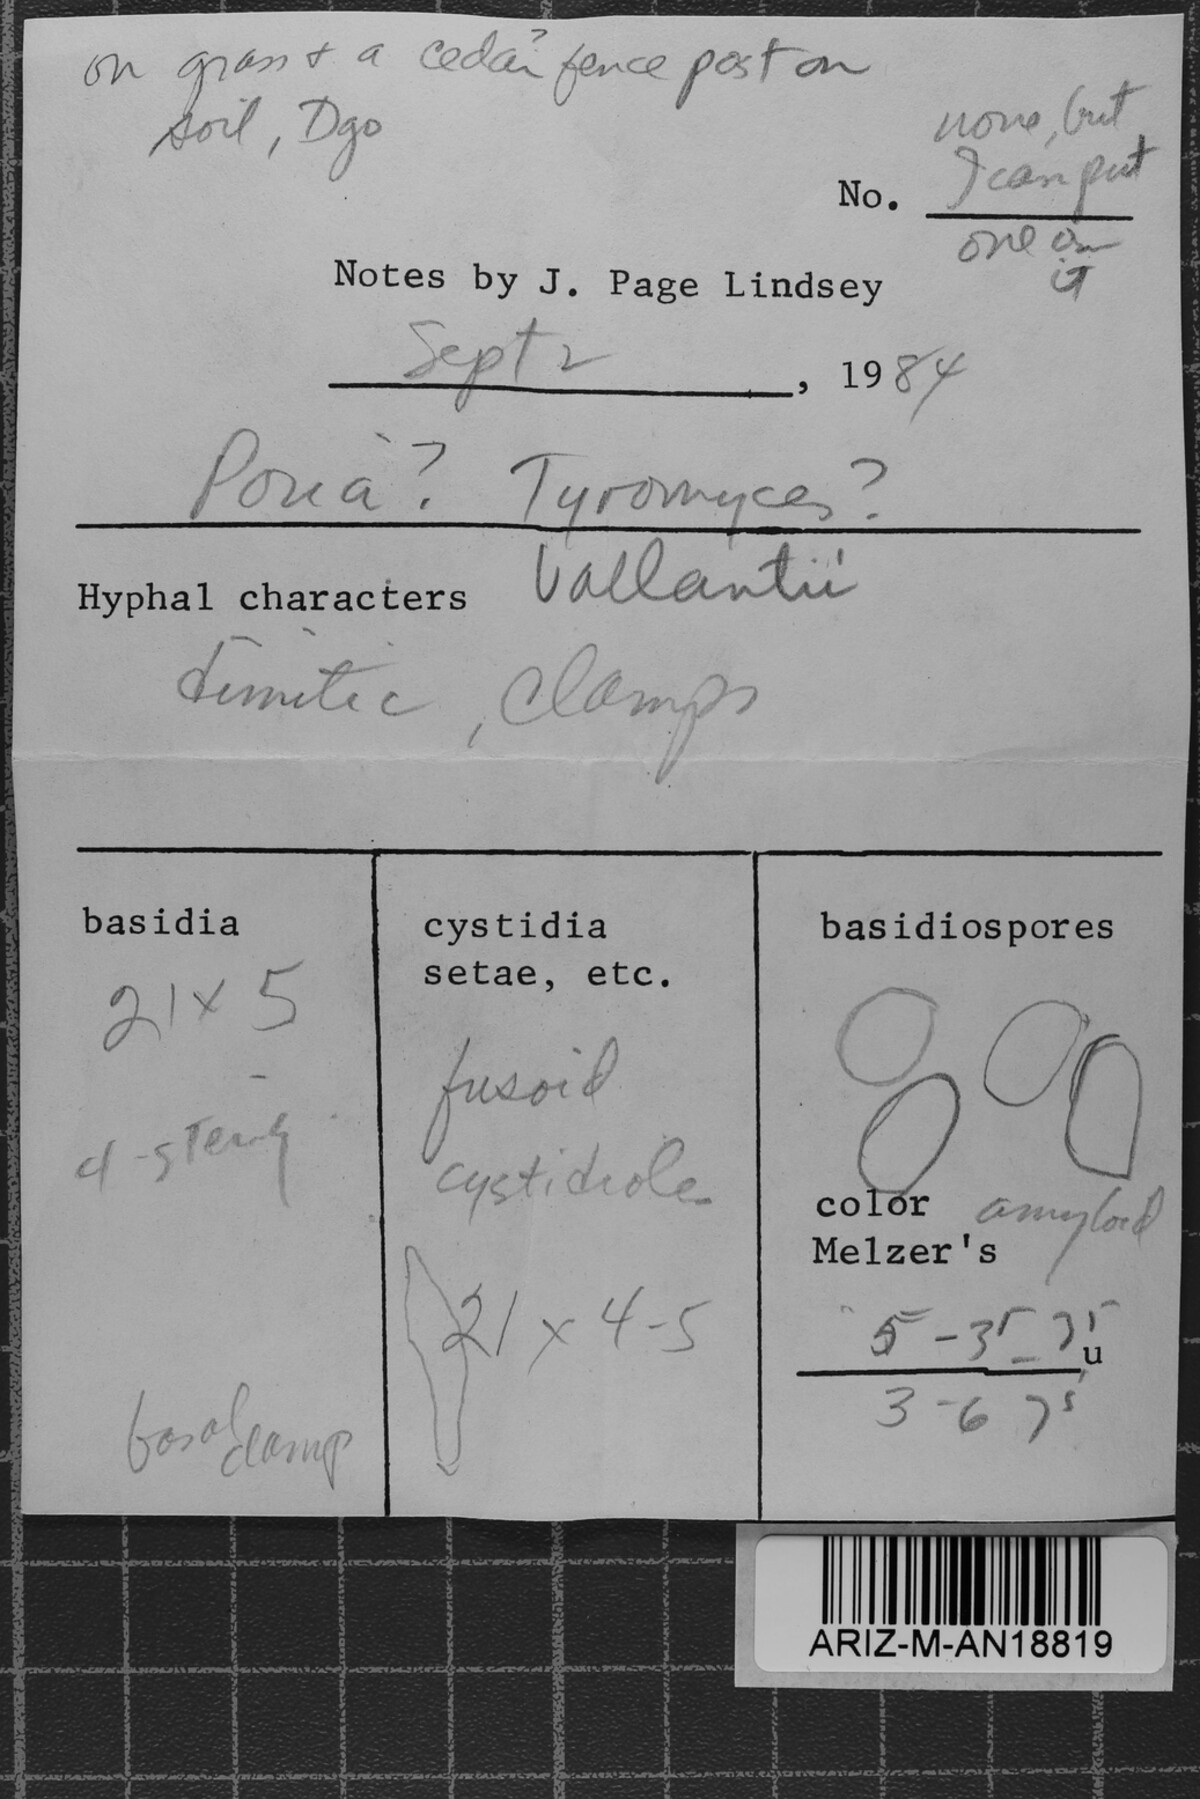 on grass & a cedar? fence post on
soil, Dgo
none, but
No. I can put
one on
it
Notes by J. Page Lindsey
Sept 2, 1984
Poria? Tyromyces?
Vallantii
Hyphal characters
dimitic, clamps
basidia
21 x 5
4-sterig
basal clamp
cystidia
setae, etc.
fusoid
cystidiole
21 x 4-5
basidiospores
color amyloid
Melzer's
u
ARIZ-M-AN18819